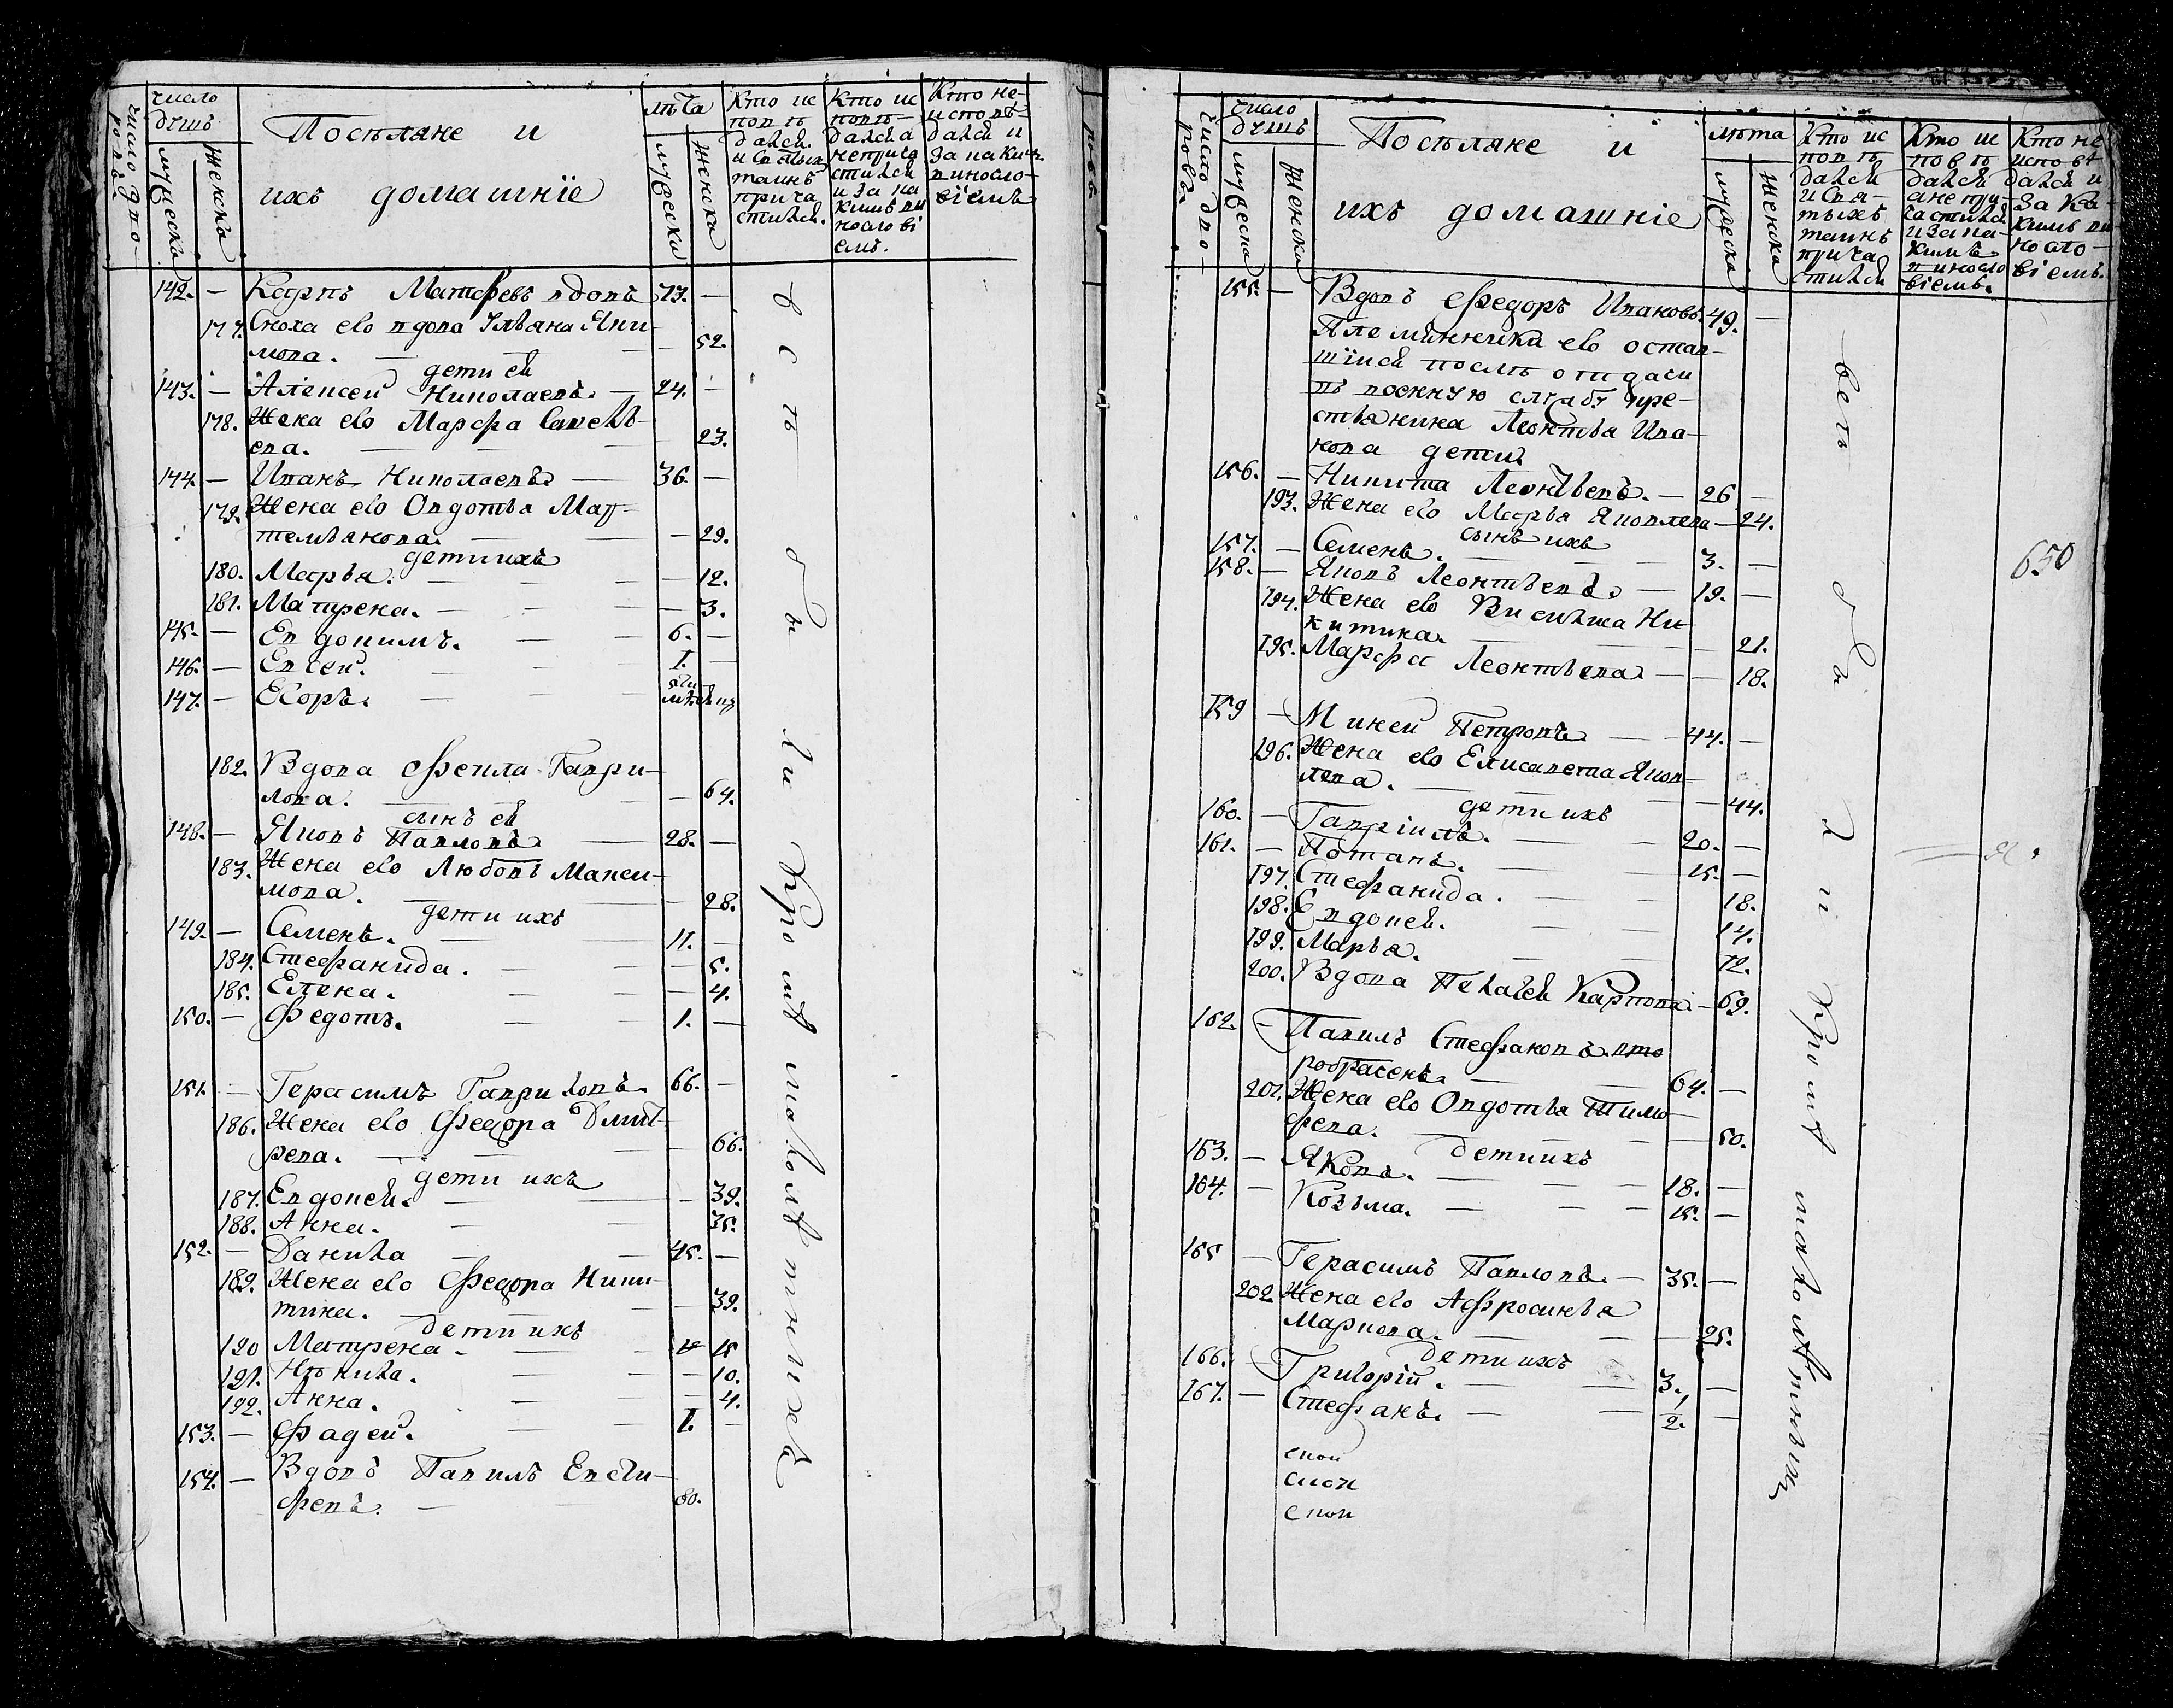 число дво-
ровъ
число
душъ
мужеска
женска
Посѣляне и
ихъ домашніе
лѣта
мужеска
женска
Кто ис
повѣ
дался
и Святых
таинъ
прича
стился.
Кто ис
повѣ-
дался а
неприча
стился
и за ка
кимъ ви
нослові
емъ.
Кто не-
исповѣ-
дался и
за каким
виносло-
віемъ
142. — Карпъ Матфевъ вдовъ 73. —
177. Сноха ево вдова Ульяна Яки-
мова. — — 52.
дети ей
143. — Алексей Николаевъ. — 24. —
178. Жена ево Марфа Савель-
ева. — — 23.
144. — Иванъ Николаевъ — 36. —
179. Жена ево Овдотья Мар-
темьянова. — — 29.
дети ихъ
180. Марья. — — 12.
181. Матрена. — — 3.
145. — Евдокимъ. — 6. —
146. — Евсей. — 1. —
147. — Егоръ. —
182. Вдова Фекла Гаври-
лова. — — 64.
сынъ ей
148. — Яковъ Павловъ — 28. —
183. Жена ево Любовь Макси-
мова. — — 28.
дети ихъ
149. — Семенъ. — 11. —
184. Стефанида. — — 5.
185. Елена. — — 4.
150. — Федотъ. — 1. —
151. — Герасимъ Гавриловъ. 66. —
186. Жена ево Федора Дмит-
рева. — — 66.
дети ихъ
187. Евдокея. — — 39.
188. Анна. — 35.
152. — Данила — 45. —
189. Жена ево Федора Ники-
тина. — — 39.
дети ихъ
190 Матрена. — 15
191. Нѣнила. — — 10.
192. Анна. — — 4.
153. — Фадей. — 1. —
154. — Вдовъ Павилъ Евсти-
феевъ. — 60.
всѣ обыли кромѣ малолѣтнихъ
число дво-
ровъ
число
душъ
мужеска
женска
Посѣляне и
ихъ домашніе
лѣта
мужеска
женска
Кто ис
повѣ
дался
и Свя-
тыхъ
таинъ
прича
стился
Кто ис
повѣ
дался
а непри-
частился
и за ка-
кимъ
винослo
віемъ.
Кто не
исповѣ
дался и
за ка-
кимъ ви
носло
віемъ.
155. — Вдовъ Федоръ Ивановъ. 49. —
Племянники ево остав-
шіися послѣ отдачи
въ военную службу кре-
стьянина Леонтья Ива-
нова дети
156. — Никита Леонтьевъ. — 26 —
193. Жена ево Марья Яковлева — 24.
сынъ ихъ
157. — Семенъ. — 3. —
158. — Яковъ Леонтьевъ. — 19. —
194. Жена ево Ни-
китина. — — 21.
195. Марфа Леонтьева — — 18.
159 — Микей Петровъ — 44. —
196. Жена ево Елисавета Яков-
лева. — — 44.
дети ихъ
160. — Гавріилъ. — 20. —
161. — Потапъ. — 15. —
197. Стефанида. — 18.
198. Евдокея. — 14.
199. Марья. — 12.
200. Вдова Пелагея Карпова — 69.
162. — Павилъ Стефановъ вто
робраченъ. — 64. —
201. Жена ево Овдотья Тимо
феева. — — 50.
дети ихъ
163. — Яковъ. — 18. —
164. — Козьма. — 15. —
165 — Герасимъ Павловъ. — 35. —
202 Жена ево Афросинья
Маркова. — — 25.
дети ихъ
166. — Григорій. — 3. —
167. — Стефанъ. — 1/2. —
свои
свои
свои
всѣ обыли кромѣ малолѣтнихъ
650